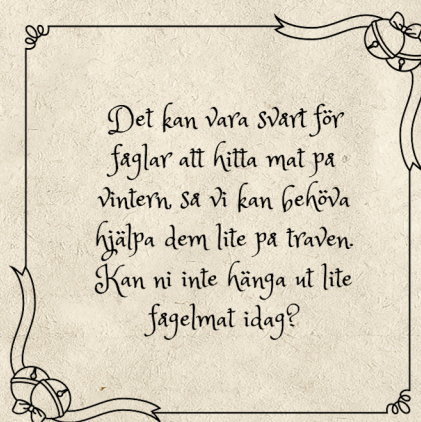 Det kan vara svårt för
fåglar att hitta mat på
vintern, så vi kan behöva
hjälpa dem lite på traven.
Kan ni inte hänga ut lite
fågelmat idag?